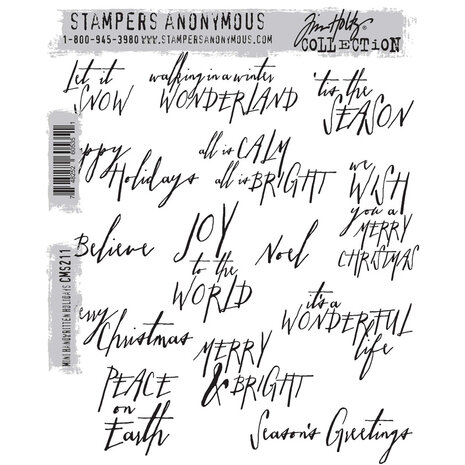 STAMPERS ANONYMOUS
1-800-945-3980 / WWW.STAMPERSANONYMOUS.COM
Tim Holtz
COLLECTION
Let it
SNOW
walking in a winter
WONDERLAND
'tis the
SEASON
appy
Holidays
all is CALM
all is BRIGHT
we
WISH
you a
MERRY
CHRISTMAS
Believe
JOY
to the
WORLD
Noel
erry
Christmas
it's a
WONDERFUL
life
MERRY
& BRIGHT
PEACE
on
Earth
Season's Greetings
MINI HANDWRITTEN HOLIDAYS CMS211